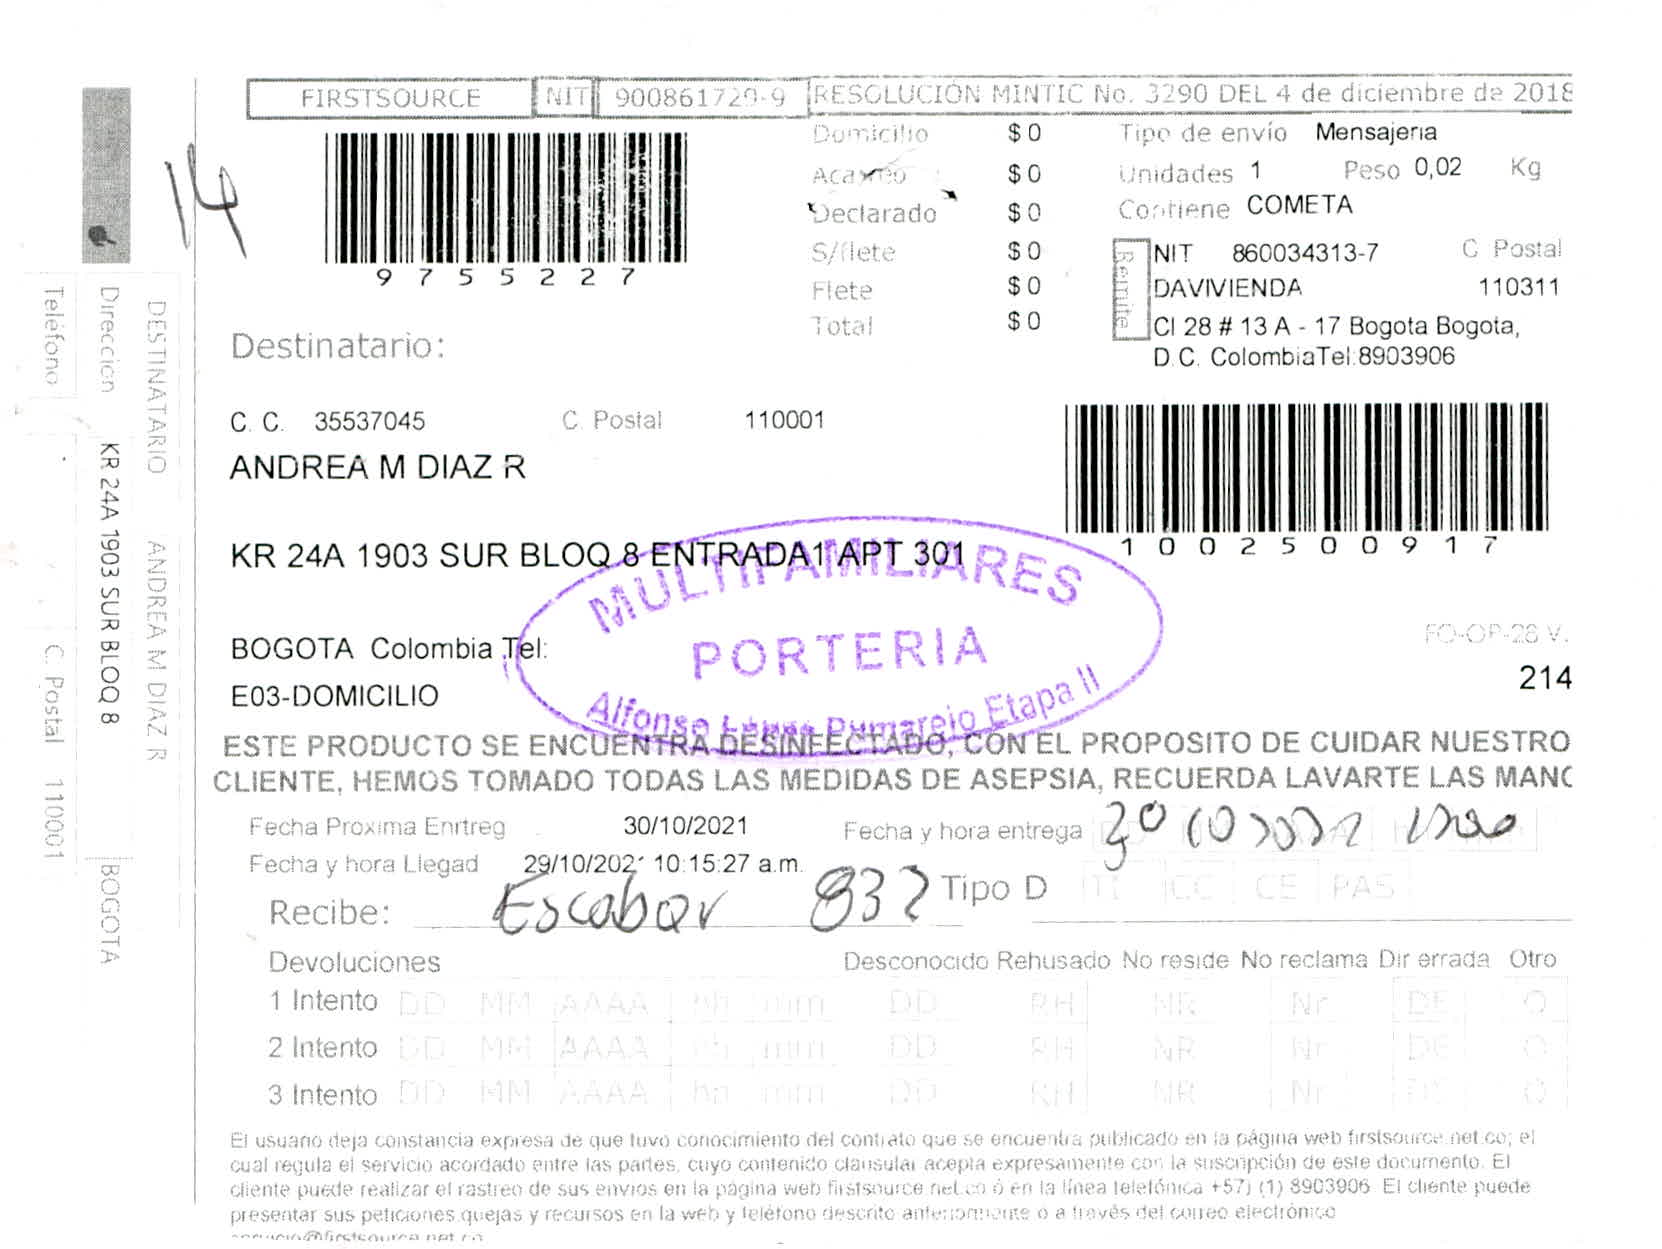 FIRSTSOURCE NIT 900861729-9 RESOLUCIÓN MINTIC No. 3290 DEL 4 de diciembre de 2018
14
97555227
Domicilio $ 0
Acarreo $ 0
Declarado $ 0
S/flete $ 0
Flete $ 0
Total $ 0
Tipo de envío Mensajeria
Unidades 1 Peso 0,02 Kg
Contiene COMETA
Remite
NIT 860034313-7 C Postal
DAVIVIENDA 110311
Cl 28 # 13 A - 17 Bogota Bogota,
D.C. ColombiaTel:8903906
Destinatario:
C. C. 35537045 C. Postal 110001
ANDREA M DIAZ R
1002500917
KR 24A 1903 SUR BLOQ 8 ENTRADA1 APT 301
MULTIFAMILIARES
PORTERIA
Alfonso López Pumarejo Etapa II
BOGOTA Colombia Tel:
E03-DOMICILIO
FO-OP-28 V.
214
ESTE PRODUCTO SE ENCUENTRA DESINFECTADO, CON EL PROPOSITO DE CUIDAR NUESTRO
CLIENTE, HEMOS TOMADO TODAS LAS MEDIDAS DE ASEPSIA, RECUERDA LAVARTE LAS MANO
Fecha Proxima Enrtreg 30/10/2021
Fecha y hora entrega
Fecha y hora Llegad 29/10/2021 10:15:27 a.m.
Recibe: Escobar 832 Tipo D TI CC CE PAS
Devoluciones Desconocido Rehusado No reside No reclama Dir errada Otro
1 Intento DD MM AAAA hh mm DD RH NR Nr DE O
2 Intento DD MM AAAA hh mm DD RH NR Nr DE O
3 Intento DD MM AAAA hh mm DD RH NR Nr DE O
El usuario deja constancia expresa de que tuvo conocimiento del contrato que se encuentra publicado en la página web firstsource.net.co; el
cual regula el servicio acordado entre las partes, cuyo contenido clausular acepta expresamente con la suscripción de este documento. El
cliente puede realizar el rastreo de sus envios en la página web firstsource.net.co ó en la línea telefónica +57) (1) 8903906 El cliente puede
presentar sus peticiones,quejas y recursos en la web y teléfono descrito anteriormente o a través del correo electrónico
servicio@firstsource.net.co
DESTINATARIO ANDREA M DIAZ R
Direccion KR 24A 1903 SUR BLOQ 8 BOGOTA
Teléfono C. Postal 110001